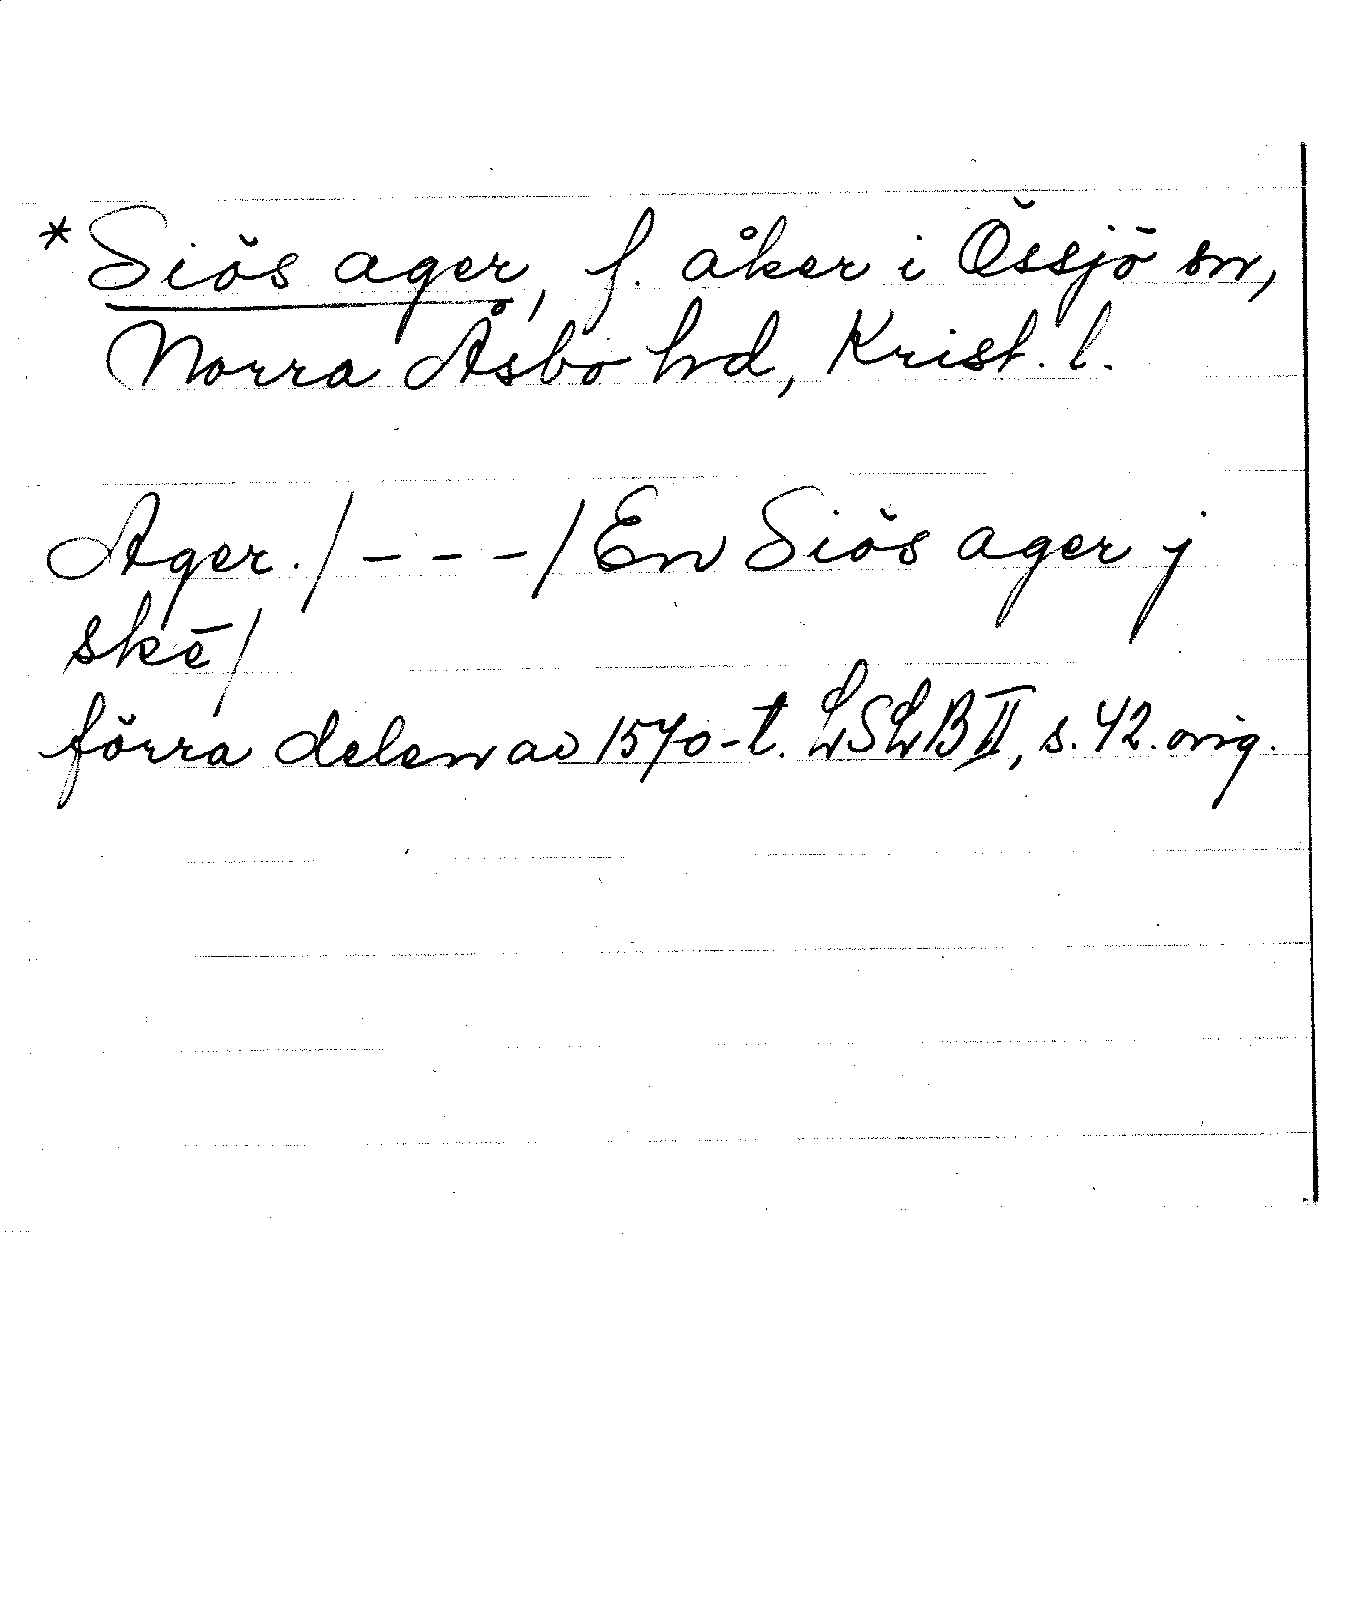 * Siös ager, f. åker i Össjö sn,
Norra Åsbo hd, Krist. l.
Ager. / - - - / En Siös ager j
skē /
förra delen av 1570-t. LSLB II, s. 42. orig.